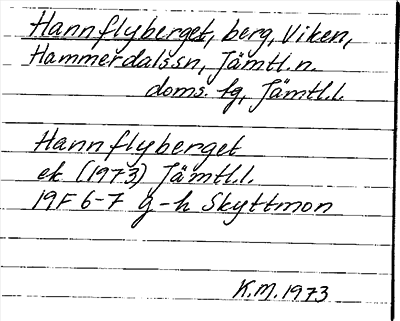 Hannflyberget, berg, Viken,
Hammerdalssn, Jämtl.n.
doms. fg, Jämtl.l.
Hannflyberget
ek (1973) Jämtl.l.
19F 6-7 g-h Skyttmon
K.M. 1973